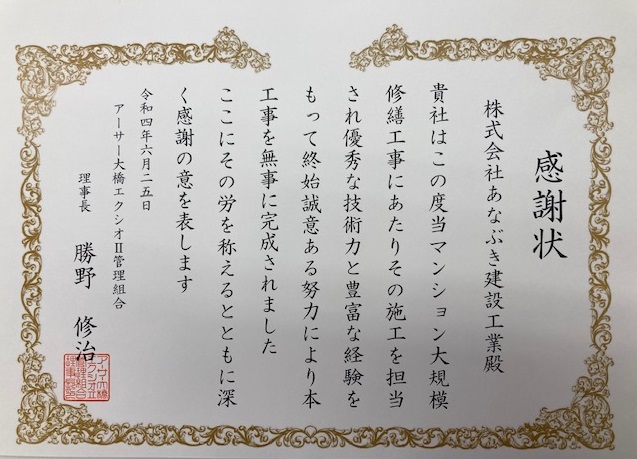 感謝状
株式会社あなぶき建設工業殿
貴社はこの度当マンション大規模
修繕工事にあたりその施工を担当
され優秀な技術力と豊富な経験を
もって終始誠意ある努力により本
工事を無事に完成されました
ここにその労を称えるとともに深
く感謝の意を表します
令和四年六月二五日
アーサー大橋エクシオⅡ管理組合
理事長 勝野 修治